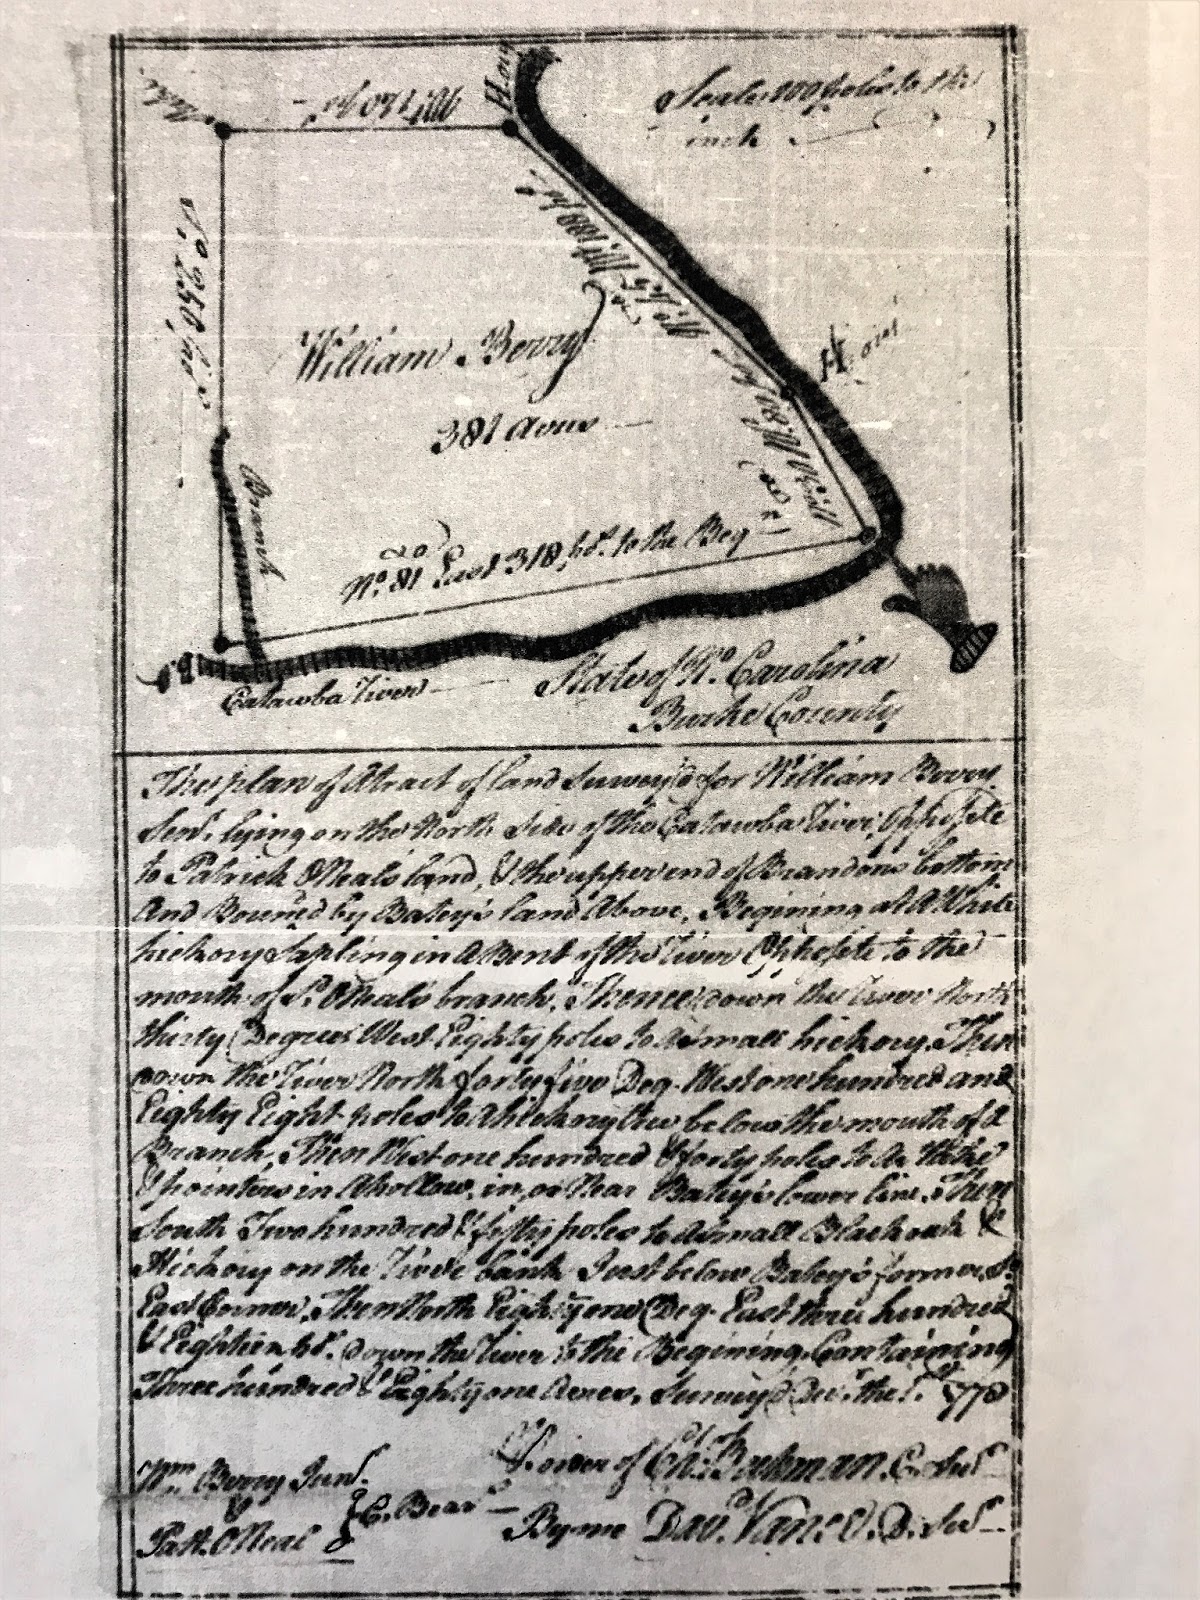 Scale 100 poles to the
inch
Wt. 140 po.
H. oaij
So. 250 po.
No. 45 Wt. 188 po.
H. oaij
William Berry
381 Acres
No. 30 W. 80 po.
Branch
No. 81 East 318 po. to the Beg
1st Co.
B.O
Catawba River
State of No. Carolina
Burke County
The plan of A tract of land Survey'd for William Berry
Senr. lying on the North Side of the Catawba River, Opposite
to Patrick ONeal's land, & the upper end of Brandons bottom
And Bound by Batey's land Above, Begining at A White
hickory Sapling in A Bent of the River Opposite to the
mouth of P. ONeal's branch, Thence down the River North
thirty Degrees West Eighty poles to A Small hickory, Then
down the River North forty five Deg. West one hundred and
Eighty Eight poles to A hickry tree below the mouth of a
Branch, Then West one hundred & forty poles to A Stake
& pointers in A hollow, in, or Near Batey's lower line, Then
South Two hundred & fifty poles to A Small Black oak &
Hickory on the River bank Just below Batey's former So.
East Corner, Then North Eighty one Deg. East three hundred
& Eighteen po. down the River to the Begining, Containing
Three hundred & Eighty one Acres, Survey'd Decr. the 1st. 1778
Wm. Berry Junr.
&
Patt. ONeal
C. Bear
Power of Ch. Beekman, C. Sur
By me Davd. Vance, D. Sur